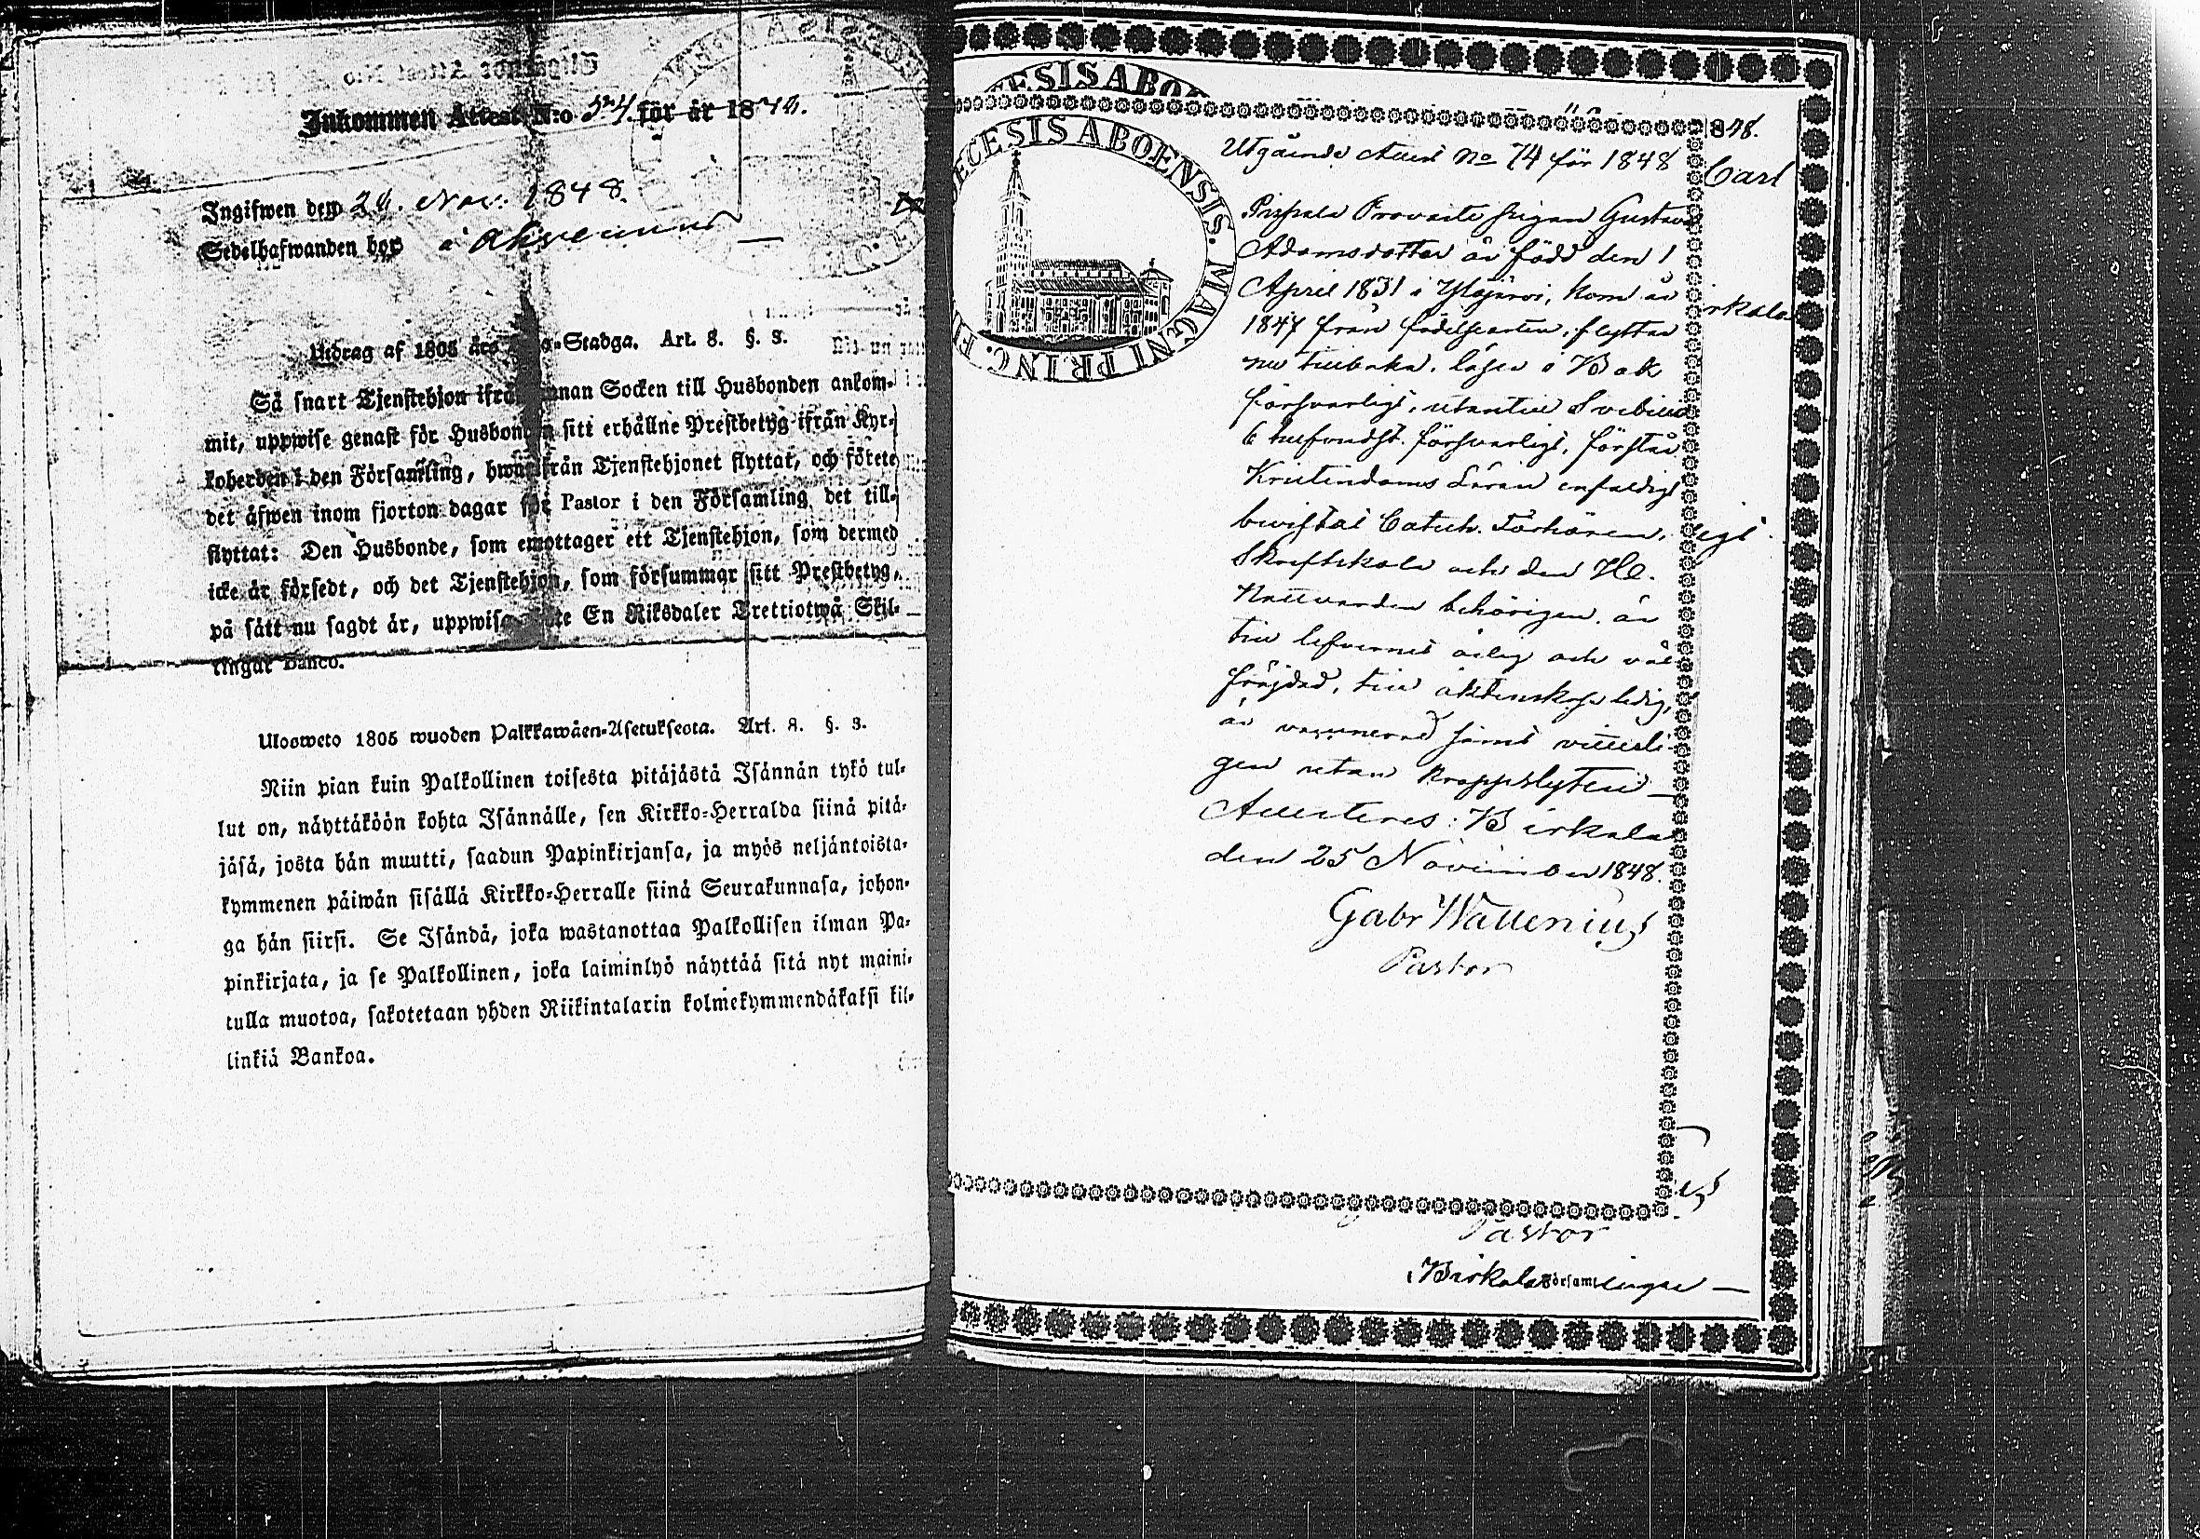 Inkommen Attest N:o 54. för år 1848.
Ingifwen den 26. Nov. 1848.
Sedelhafwanden bor å Ahvenus
Utdrag af 1805 års Stadga. Art. 8. §. 3.
Så snart Tjenstehjon ifrån annan Socken till Husbonden ankom-
mit, uppwise genast för Husbonden sitt erhållne Prestbetyg ifrån Kyr-
koherden i den Församling, hwarifrån Tjenstehjonet flyttat, och förete
det äfwen inom fjorton dagar för Pastor i den Församling det till-
flyttat: Den Husbonde, som emottager ett Tjenstehjon, som dermed
icke är försedt, och det Tjenstehjon, som försummar sitt Prestbetyg,
på sätt nu sagdt är, uppwisa, böte En Riksdaler Trettiotwå Skil-
lingar Banco.
Ulosweto 1805 wuoden Palkkawäen-Asetuksesta. Art. 8. §. 3.
Niin pian kuin Palkollinen toisesta pitäjästä Isännän tykö tul-
lut on, näyttäköön kohta Isännälle, sen Kirkko-Herralda siinä pitä-
jäsä, josta hän muutti, saadun Papinkirjansa, ja myös neljäntoista-
kymmenen päiwän sisällä Kirkko-Herralle siinä Seurakunnasa, johon-
ga hän siirsi. Se Isändä, joka wastanottaa Palkollisen ilman Pa-
pinkirjata, ja se Palkollinen, joka laiminlyö näyttää sitä nyt maini-
tulla muotoa, sakotetaan yhden Riikintalarin kolmekymmendäkaksi kil-
linkiä Bankoa.
ECESIS ABOENSIS. MAGNI PRINC. F
848.
Utgående Attest No 74 för 1848
Carl
Pispala Provaste pigan Gustava
Adamsdotter är född den 1
April 1831 i Ylöjärvi, kom år
irkala
1847 från födelseorten, flyttar
nu tillbaka, läser i Bok
försvarligt, utantill Svebilii
försvarligt, förstår
Kristendoms Läran enfaldigt
bevistat Catech. Förhören,
Skriftskola och den Hel.
Nattvarden behörigen, är
till lefvernet ärlig och väl
fräjdad, till äktenskap ledig,
är vaccinerad samt vitterli-
gen utan kroppslyten
Attesteras: Birkala
den 25 November 1848.
Gabr Wallenius
Pastor
Pastor
Birkala Församlingar